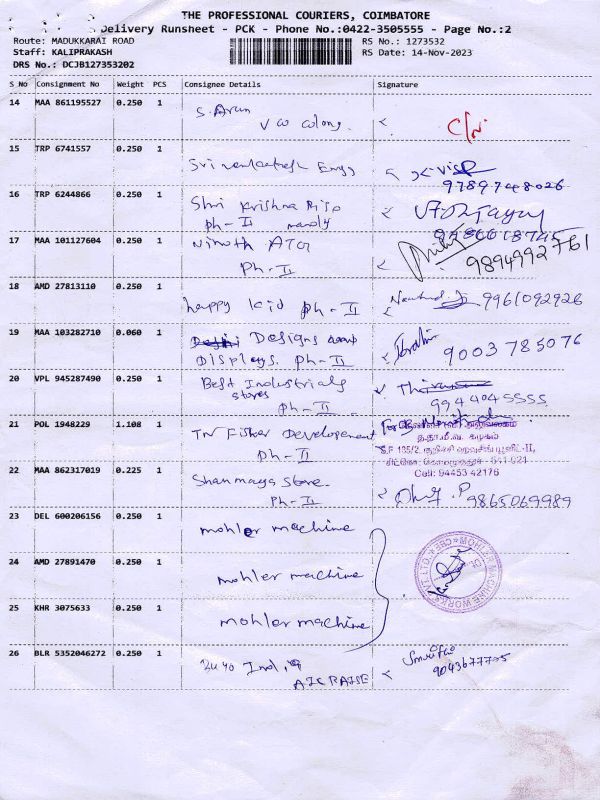 THE PROFESSIONAL COURIERS, COIMBATORE
Delivery Runsheet - PCK - Phone No.:0422-3505555 - Page No.:2
Route: MADUKKARAI ROAD
RS No.: 1273532
Staff: KALIPRAKASH
RS Date: 14-Nov-2023
DRS No.: DCJB127353202
S No Consignment No Weight PCS Consignee Details Signature
14 MAA 861195527 0.250 1
S. Arun
V W Colony.
15 TRP 6741557 0.250 1
Sri Venkatesh Engg
9789748026
16 TRP 6244866 0.250 1
Shri Krishna
Ph-II
17 MAA 101127604 0.250 1
Vinoth
Ph-II
9894992761
18 AMD 27813110 0.250 1
happy kid Ph-II
9961092926
19 MAA 103282710 0.060 1
Designs and
Displays. Ph-II
Ibrahim
9003785076
20 VPL 945287490 0.250 1
Best Industrials
stores
Ph-II
9944045555
21 POL 1948229 1.108 1
TN Fisher Developement
Ph-II
த.நா.மீ.வ. கழகம்
S.F 135/2,
641-021
Cell: 94453 42176
22 MAA 862317019 0.225 1
Shanmaga Store.
Ph-II
9865069989
23 DEL 600206156 0.250 1
mohler machine
24 AMD 27891470 0.250 1
mohler machine
MOHLER MACHINE WORKS PVT. LTD.
CBE
25 KHR 3075633 0.250 1
mohler machine
26 BLR 5352046272 0.250 1